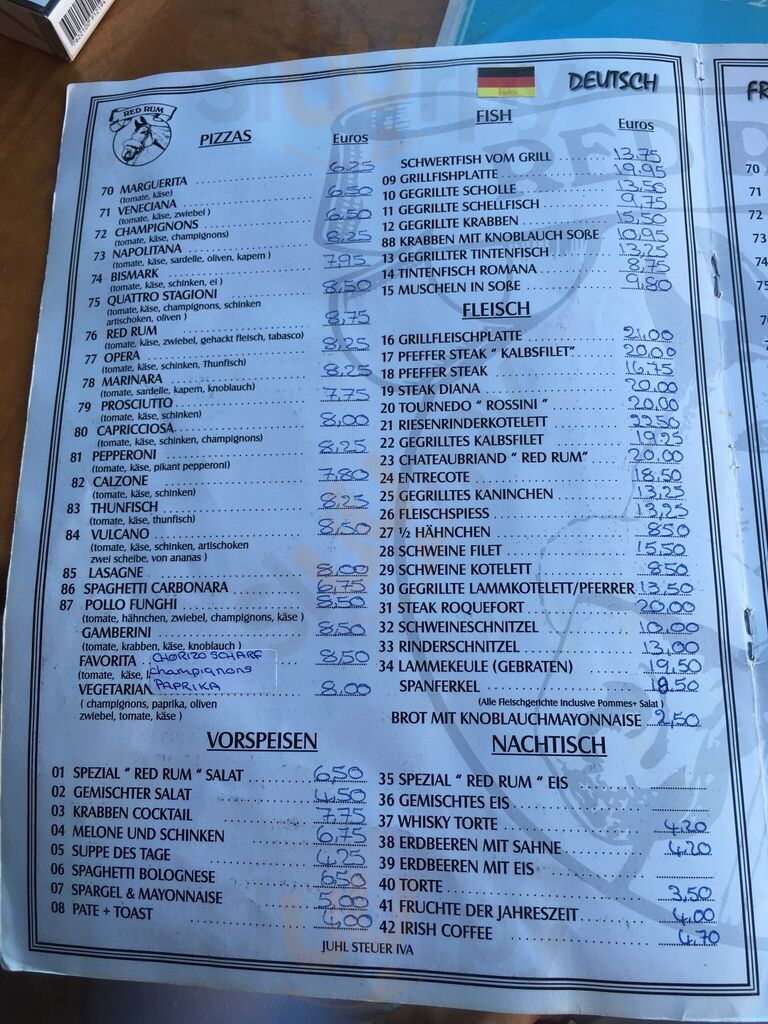 RED RUM
PIZZAS
Euros
70 MARGUERITA 6.25
(tomate, käse)
71 VENECIANA 6.50
(tomate, käse, zwiebel )
72 CHAMPIGNONS 6.50
(tomate, käse, champignons)
73 NAPOLITANA 8.25
(tomate, käse, sardelle, oliven, kapern )
74 BISMARK 7.95
(tomate, käse, schinken, ei )
75 QUATTRO STAGIONI 8.50
(tomate, käse, champignons, schinken
artischoken, oliven )
76 RED RUM 8.75
(tomate, käse, zwiebel, gehackt fleisch, tabasco)
77 OPERA 8.25
(tomate, käse, schinken, Thunfisch)
78 MARINARA 8.25
(tomate, sardelle, kapern, knoblauch)
79 PROSCIUTTO 7.75
(tomate, käse, schinken)
80 CAPRICCIOSA 8.00
(tomate, käse, schinken, champignons)
81 PEPPERONI 8.25
(tomate, käse, pikant pepperoni)
82 CALZONE 7.80
(tomate, käse, schinken)
83 THUNFISCH 8.25
(tomate, käse, thunfisch)
84 VULCANO 8.50
(tomate, käse, schinken, artischoken
zwei scheibe, von ananas )
85 LASAGNE 8.00
86 SPAGHETTI CARBONARA 6.75
87 POLLO FUNGHI 8.50
(tomate, hähnchen, zwiebel, champignons, käse )
GAMBERINI 8.50
(tomate, krabben, käse, knoblauch )
FAVORITA CHORIZO SCHARF 8.50
(tomate, käse, champignons
PAPRIKA
VEGETARIAN 8.00
( champignons, paprika, oliven
zwiebel, tomate, käse )
VORSPEISEN
01 SPEZIAL " RED RUM " SALAT 6.50
02 GEMISCHTER SALAT 4.50
03 KRABBEN COCKTAIL 7.75
04 MELONE UND SCHINKEN 6.75
05 SUPPE DES TAGE 4.25
06 SPAGHETTI BOLOGNESE 6.50
07 SPARGEL & MAYONNAISE 5.00
08 PATE + TOAST 4.00
JUHL STEUER IVA
DEUTSCH
FISH
Euros
SCHWERTFISH VOM GRILL 13.75
09 GRILLFISHPLATTE 19.95
10 GEGRILLTE SCHOLLE 13.50
11 GEGRILLTE SCHELLFISCH 9.75
12 GEGRILLTE KRABBEN 15.50
88 KRABBEN MIT KNOBLAUCH SOßE 10.95
13 GEGRILLTER TINTENFISCH 13.25
14 TINTENFISCH ROMANA 8.75
15 MUSCHELN IN SOßE 9.80
FLEISCH
16 GRILLFLEISCHPLATTE 21.00
17 PFEFFER STEAK " KALBSFILET" 20.00
18 PFEFFER STEAK 16.75
19 STEAK DIANA 20.00
20 TOURNEDO " ROSSINI " 20.00
21 RIESENRINDERKOTELETT 22.50
22 GEGRILLTES KALBSFILET 19.25
23 CHATEAUBRIAND " RED RUM" 20.00
24 ENTRECOTE 18.50
25 GEGRILLTES KANINCHEN 13.25
26 FLEISCHSPIESS 13.25
27 ½ HÄHNCHEN 8.50
28 SCHWEINE FILET 15.50
29 SCHWEINE KOTELETT 8.50
30 GEGRILLTE LAMMKOTELETT/PFERRER 13.50
31 STEAK ROQUEFORT 20.00
32 SCHWEINESCHNITZEL 10.00
33 RINDERSCHNITZEL 13.00
34 LAMMEKEULE (GEBRATEN) 19.50
SPANFERKEL 18.50
(Alle Fleischgerichte Inclusive Pommes+ Salat )
BROT MIT KNOBLAUCHMAYONNAISE 2,50
NACHTISCH
35 SPEZIAL " RED RUM " EIS
36 GEMISCHTES EIS
37 WHISKY TORTE 4.20
38 ERDBEEREN MIT SAHNE 4.20
39 ERDBEEREN MIT EIS
40 TORTE 3,50
41 FRUCHTE DER JAHRESZEIT 4.00
42 IRISH COFFEE 4.70
FR
70
71
72
73